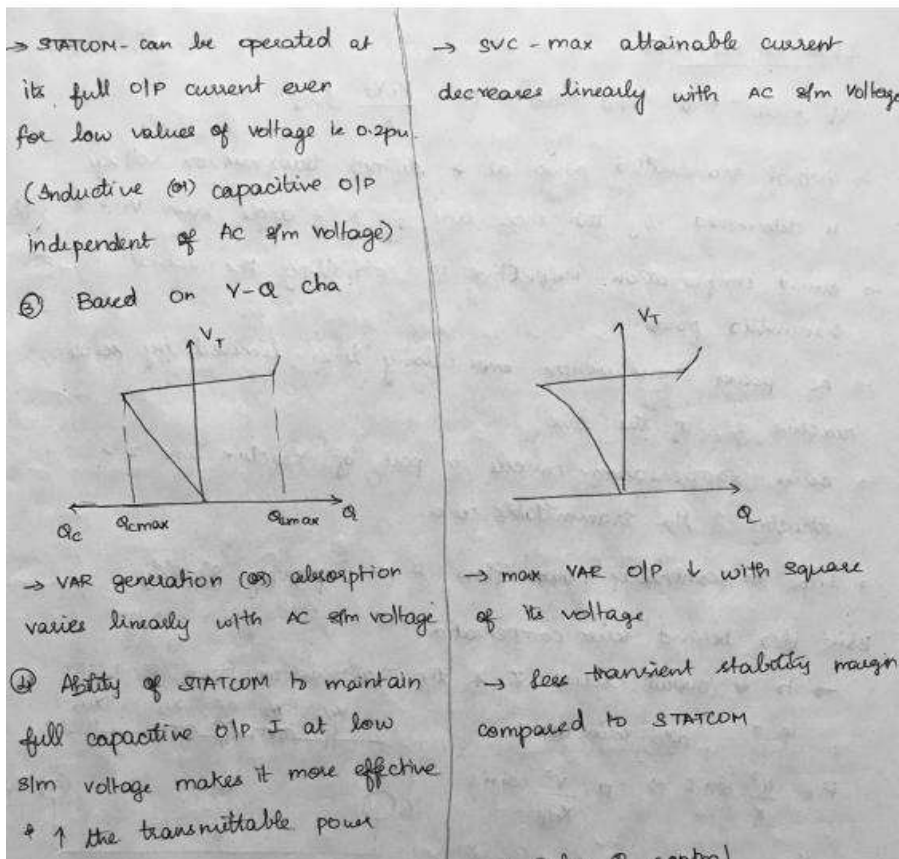 → STATCOM - can be operated at
its full O/P current ever
for low values of voltage ie 0.2pu.
(Inductive (or) capacitive O/P
independent of AC s/m voltage)
③ Based on V-Q cha
V_T
Q_C
Q_Cmax
Q_Lmax
Q
→ VAR generation (or) absorption
varies linearly with AC s/m voltage
④ Ability of STATCOM to maintain
full capacitive O/P I at low
s/m voltage makes it more effective
& ↑ the transmittable power
→ SVC - max attainable current
decreases linearly with AC s/m voltage
V_T
Q
→ max VAR O/P ↓ with square
of its voltage
→ Less transient stability margin
compared to STATCOM
control